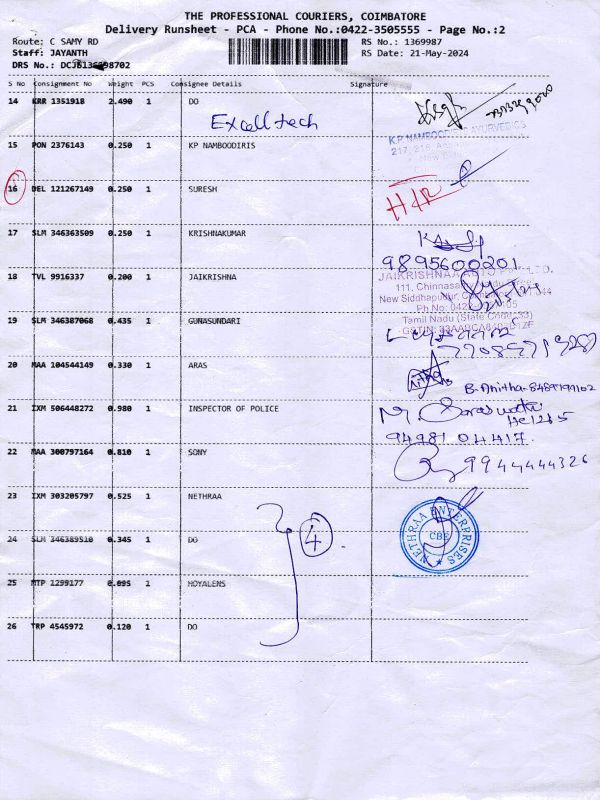 THE PROFESSIONAL COURIERS, COIMBATORE
Delivery Runsheet - PCA - Phone No.:0422-3505555 - Page No.:2
Route: C SAMY RD RS No.: 1369987
Staff: JAYANTH RS Date: 21-May-2024
DRS No.:
S No Consignment No Weight PCS Consignee Details Signature
14 KRR 1351918 2.490 1 DO
Excelltech
15 PON 2376143 0.250 1 KP NAMBOODIRIS
K.P NAMBOODIRI'S AYURVEDICS
16 DEL 121267149 0.250 1 SURESH
17 SLM 346363509 0.250 1 KRISHNAKUMAR
9895600201
18 TVL 9916337 0.200 1 JAIKRISHNA
JAIKRISHNA LTD.
111, Chinnasa
New Siddhapudur,
Ph No: 0422
Tamil Nadu (State Code: 33)
19 SLM 346387068 0.435 1 GUNASUNDARI
20 MAA 104544149 0.330 1 ARAS
B. Anitha - 8489194102
21 IXM 506448272 0.980 1 INSPECTOR OF POLICE
N. Saraswathi
HC1265
94981 04417.
22 MAA 300797164 0.810 1 SONY
9944444326
23 IXM 303205797 0.525 1 NETHRAA
NETHRAA ENTERPRISES
CBE
24 SLM 346389510 0.345 1 DO
4
25 MTP 1299177 0.695 1 HOYALENS
26 TRP 4545972 0.120 1 DO